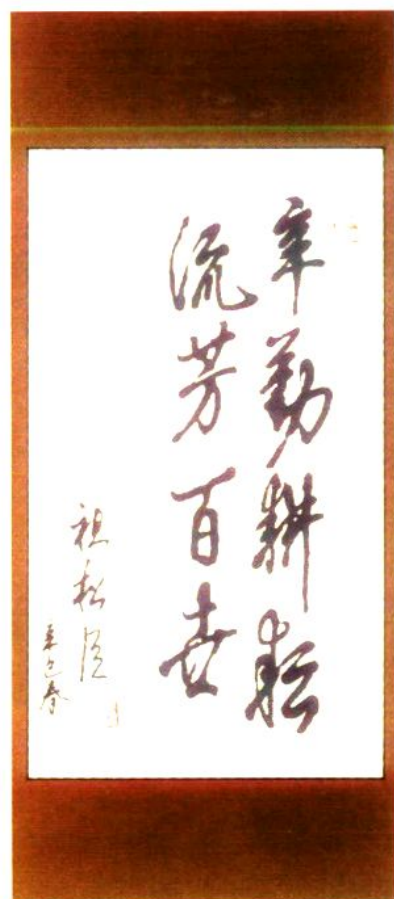 辛勤耕耘
流芳百世
祖松臣
辛巳春